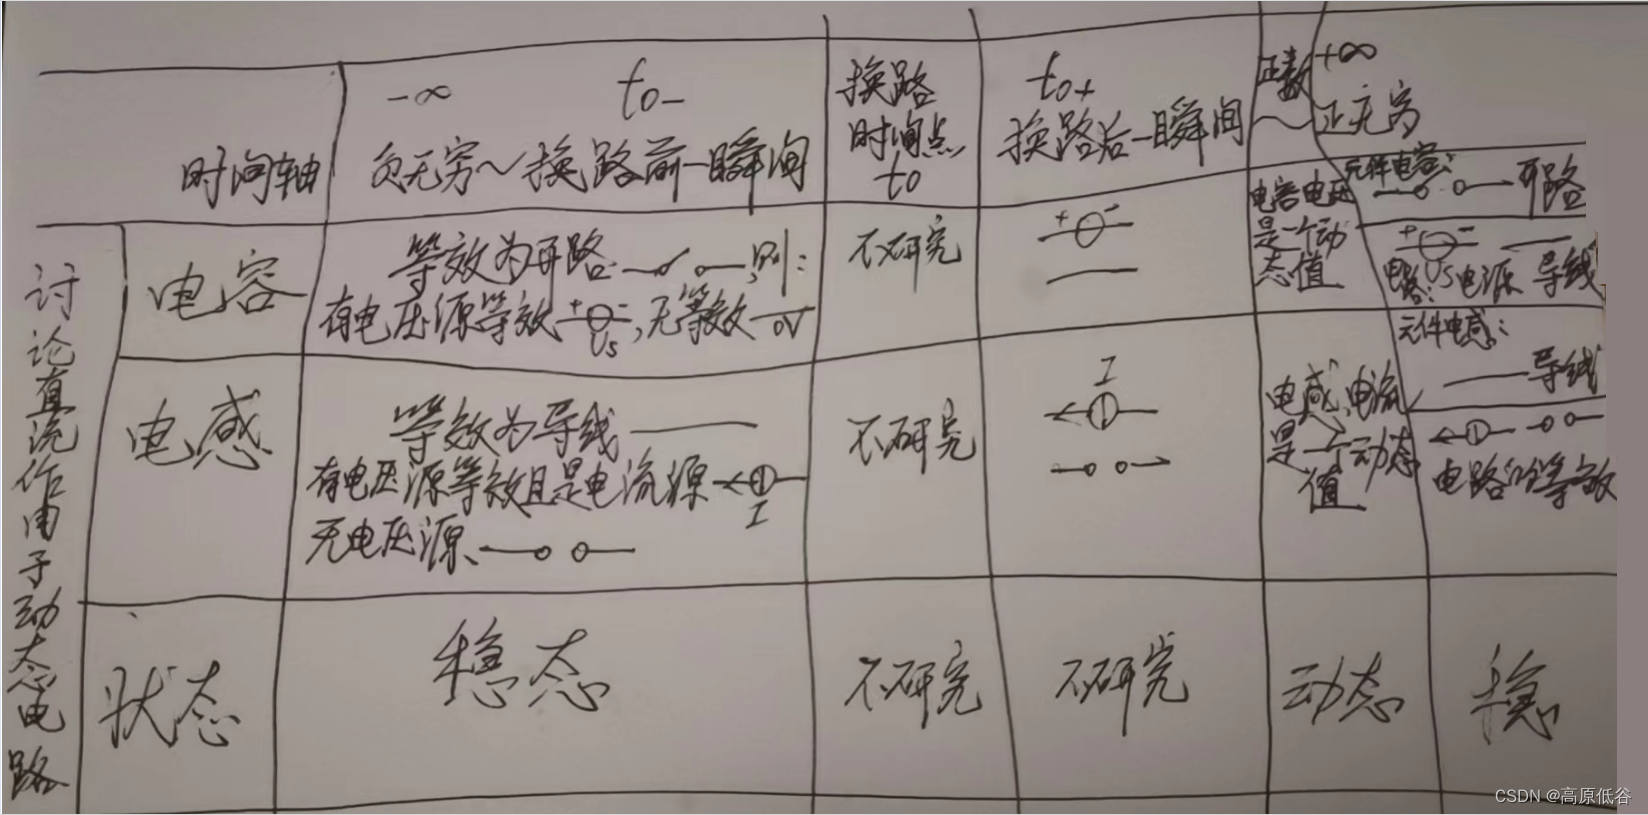 讨论直流作用于动态电路
时间轴
-∞ t0-
负无穷~换路前一瞬间
换路
时间点
t0
t0+
换路后一瞬间
正数
~
+∞
正无穷
电容
等效为开路 ,则:
有电压源等效 + - Us ,无等效 0V
不研究
+ -
电容电压
是一个动
态值
元件电容:
开路
+ - Us
电路: 电源 导线
电感
等效为导线
有电压源等效且是电流源 I
无电压源、
不研究
I
电感、电流
是一个动态
值
元件电感:
导线
电路的等效
状态
稳态
不研究
不研究
动态
稳
CSDN @高原低谷